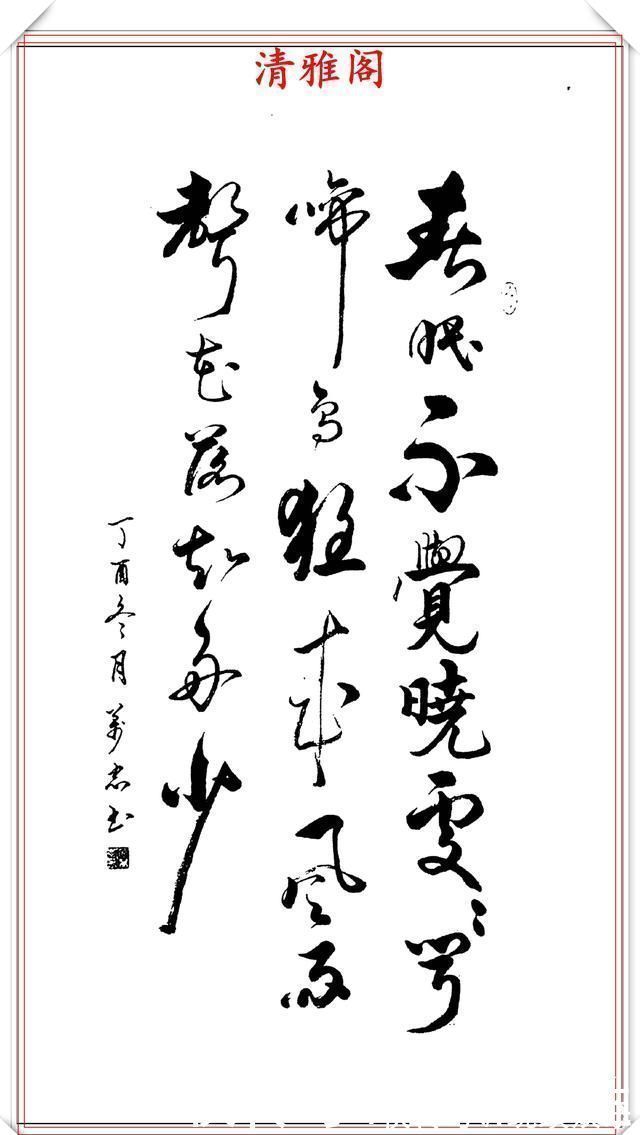 清雅阁
春眠不覺曉處々聞
啼鳥夜來風雨
聲花落知多少
丁酉冬月萬忠书